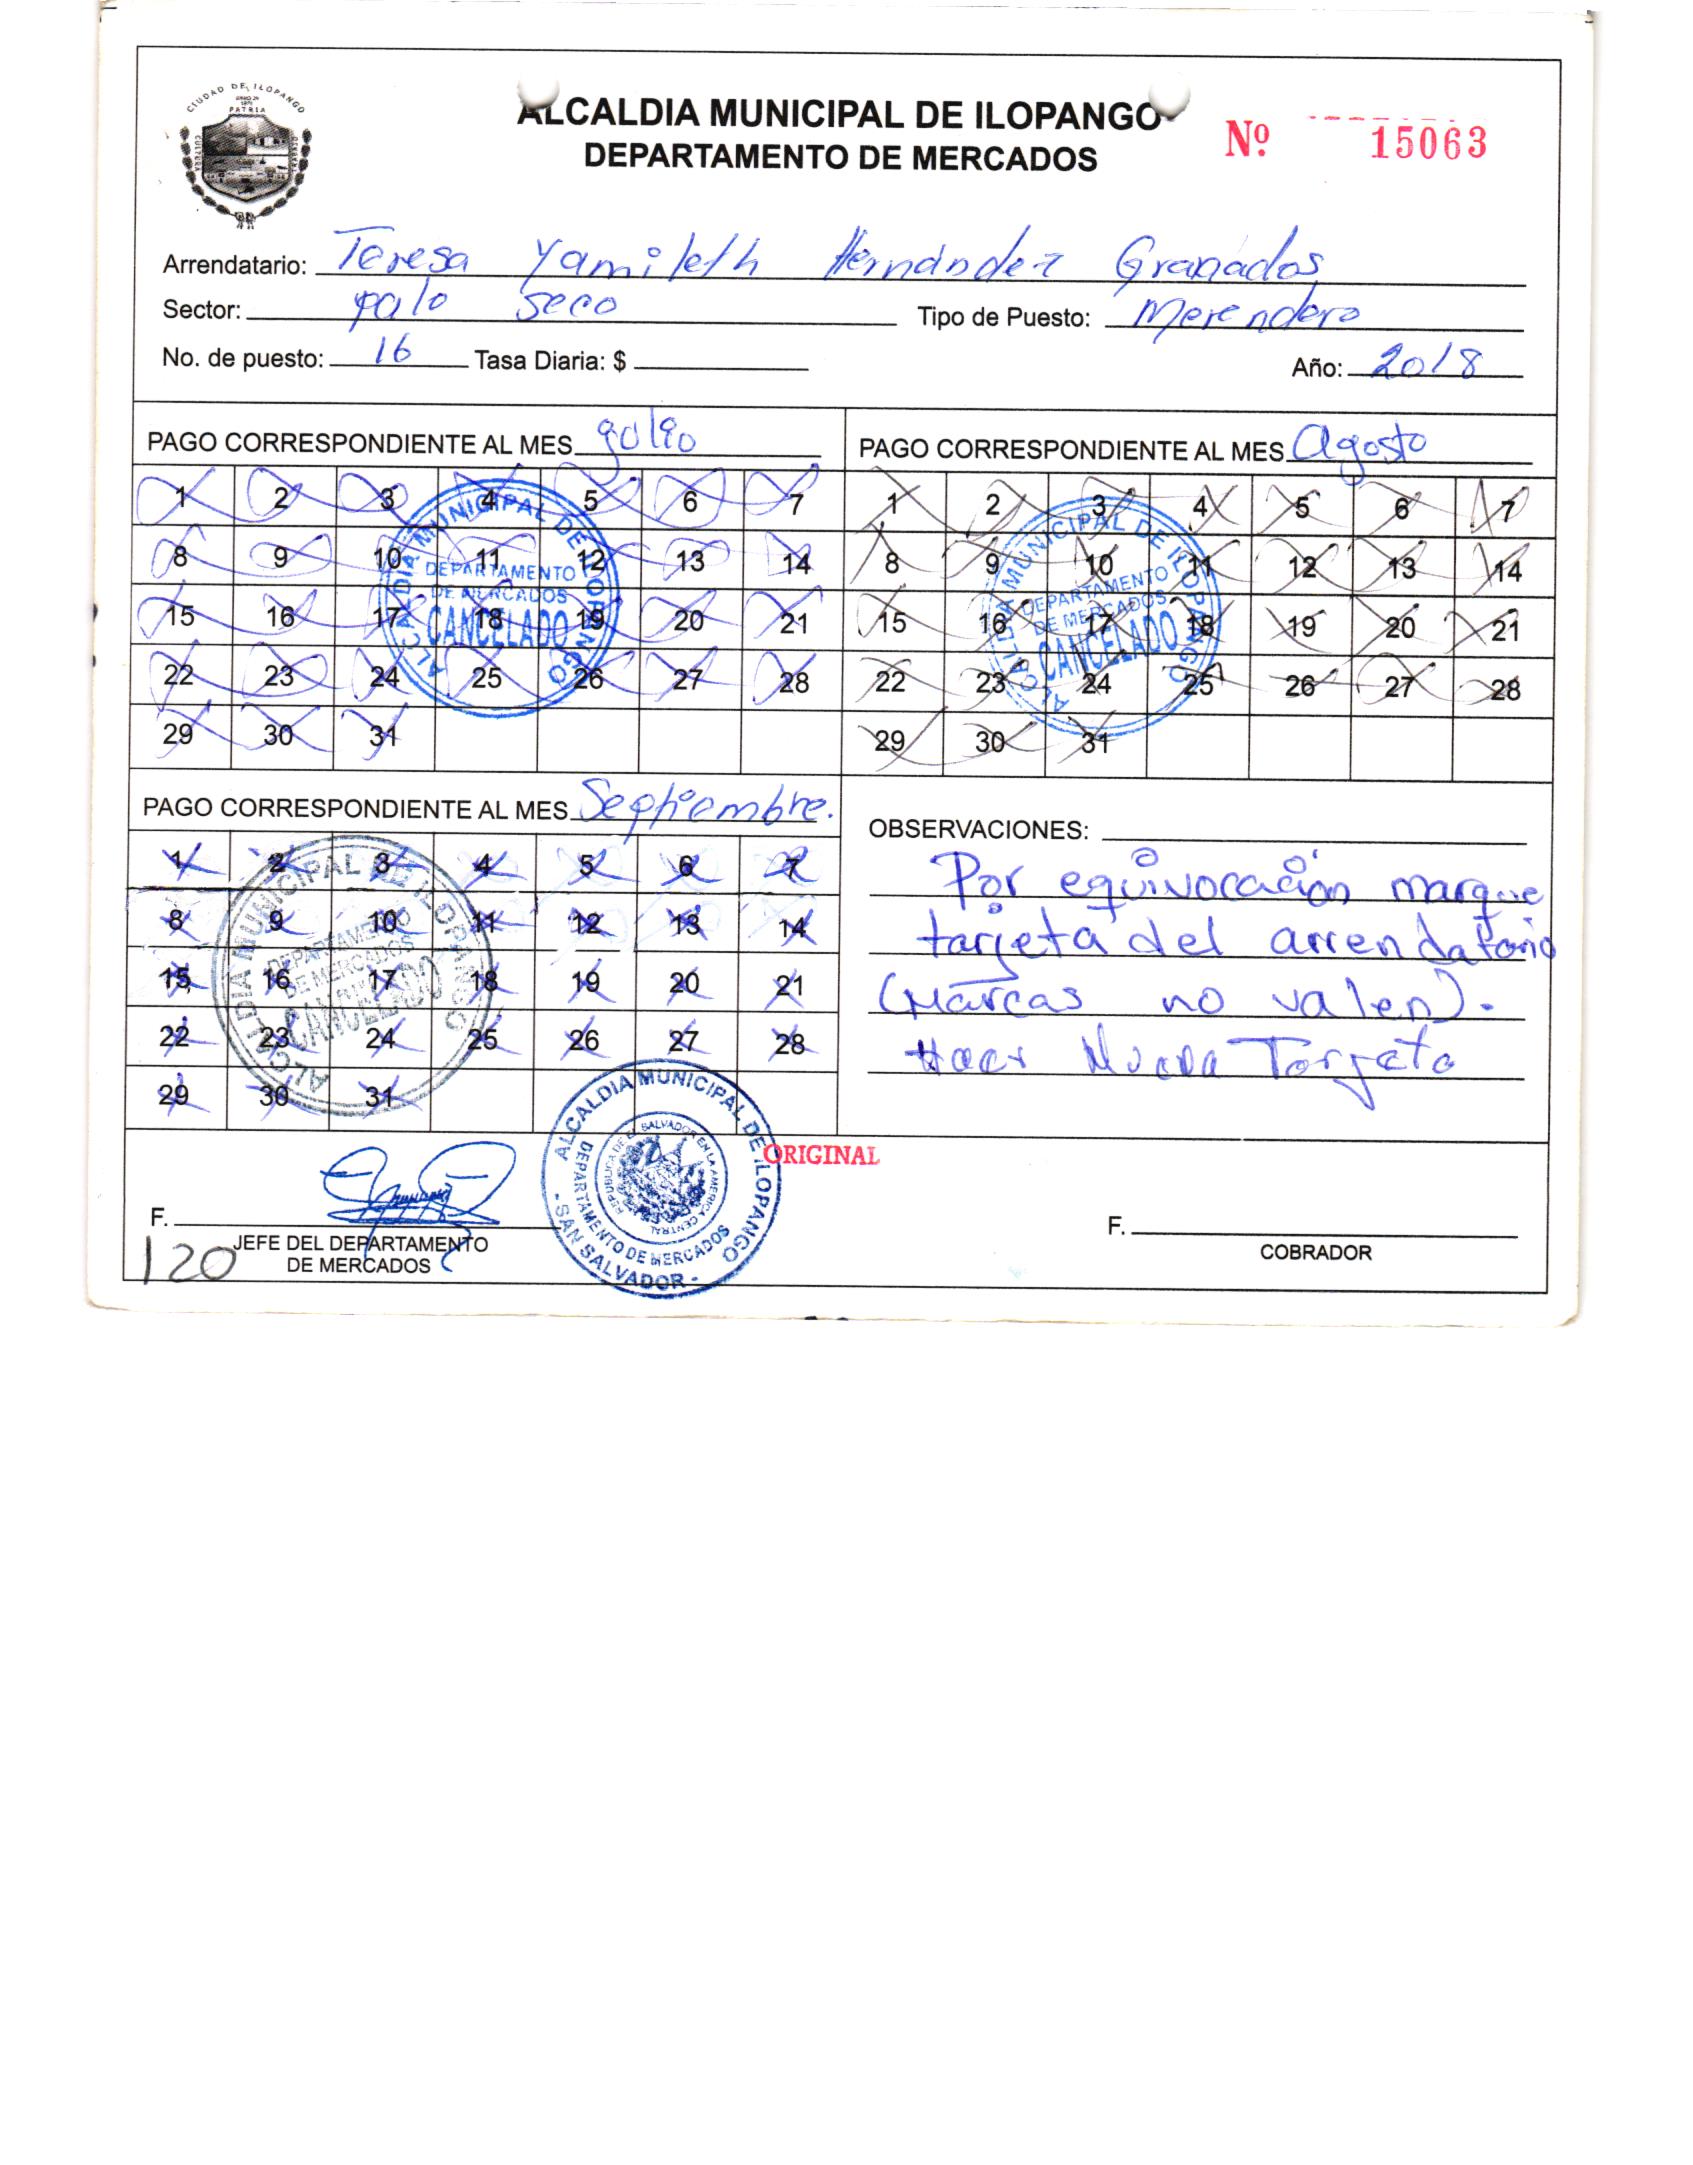 CIUDAD DE ILOPANGO
PATRIA
CULTURA
ALCALDIA MUNICIPAL DE ILOPANGO
DEPARTAMENTO DE MERCADOS
Nº 15063
Arrendatario: Teresa Yamileth Hernández Granados
Sector: palo seco Tipo de Puesto: Merendero
No. de puesto: 16 Tasa Diaria: $ Año: 2018
PAGO CORRESPONDIENTE AL MES julio
1 2 3 4 5 6 7
8 9 10 11 12 13 14
15 16 17 18 19 20 21
22 23 24 25 26 27 28
29 30 31
ALCALDIA MUNICIPAL DE ILOPANGO
DEPARTAMENTO
DE MERCADOS
CANCELADO
PAGO CORRESPONDIENTE AL MES Agosto
1 2 3 4 5 6 7
8 9 10 11 12 13 14
15 16 17 18 19 20 21
22 23 24 25 26 27 28
29 30 31
ALCALDIA MUNICIPAL DE ILOPANGO
DEPARTAMENTO
DE MERCADOS
CANCELADO
PAGO CORRESPONDIENTE AL MES Septiembre.
1 2 3 4 5 6 7
8 9 10 11 12 13 14
15 16 17 18 19 20 21
22 23 24 25 26 27 28
29 30 31
ALCALDIA MUNICIPAL DE ILOPANGO
DEPARTAMENTO
DE MERCADOS
CANCELADO
OBSERVACIONES:
Por equivocación marque
tarjeta del arrendatario
(Marcas no valen).
Hacer Nueva Tarjeta
ALCALDIA MUNICIPAL DE ILOPANGO
DEPARTAMENTO DE MERCADOS
- SAN SALVADOR -
REPUBLICA DE EL SALVADOR EN LA AMERICA CENTRAL
ORIGINAL
F.
JEFE DEL DEPARTAMENTO
DE MERCADOS
120
F.
COBRADOR